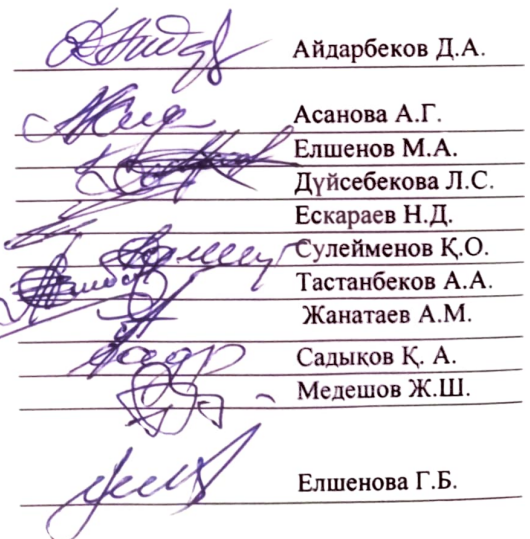 Айдарбеков Д.А.
Асанова А.Г.
Елшенов М.А.
Дүйсебекова Л.С.
Ескараев Н.Д.
Сулейменов Қ.О.
Тастанбеков А.А.
Жанатаев А.М.
Садықов Қ. А.
Медешов Ж.Ш.
Елшенова Г.Б.